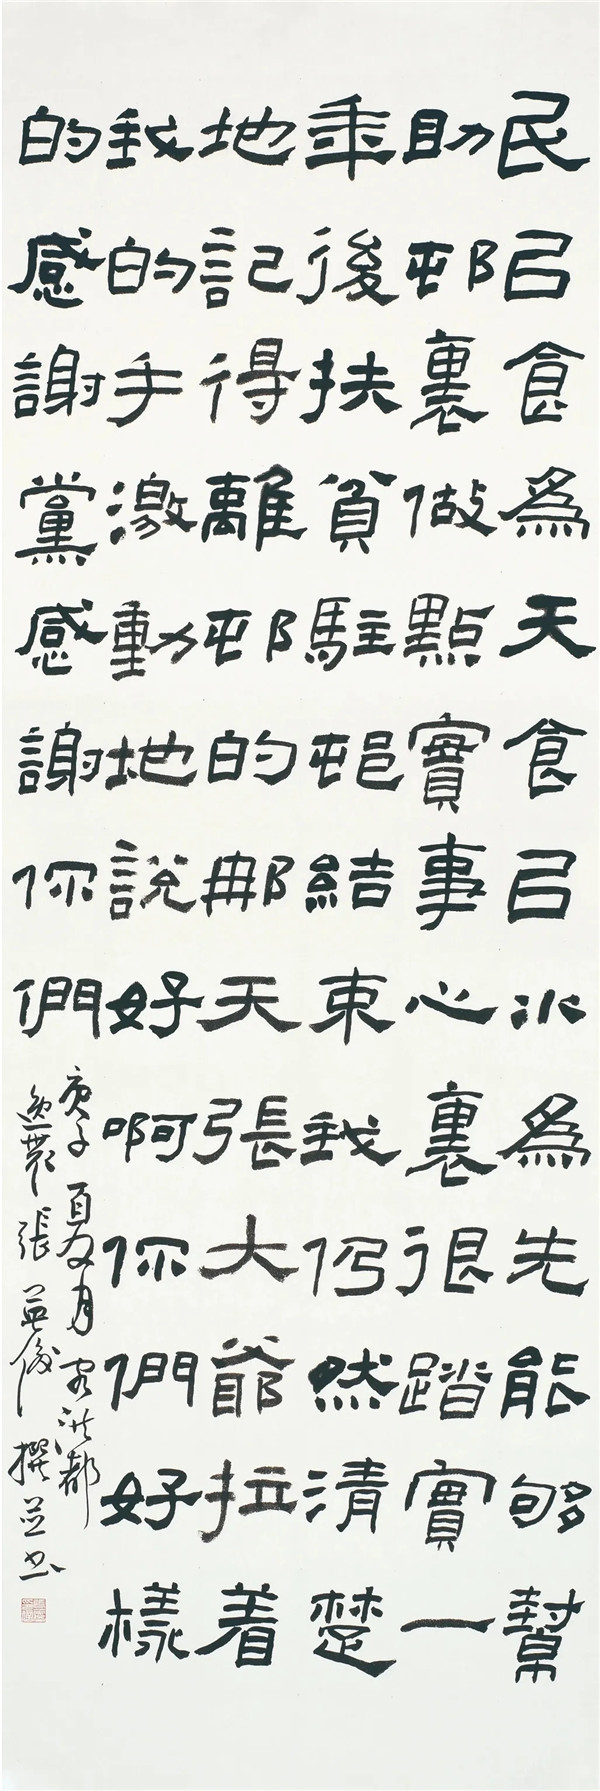 民㠯食為天食㠯水為先能够幫
助邨裏做點實事心裏很踏實一
年後扶貧駐邨結束我仍然清楚
地記得離邨的那天張大爺拉着
我的手激動地說好啊你們好樣
的感謝黨感謝你們
庚子夏月客洪都
逸農張益俊撰並書